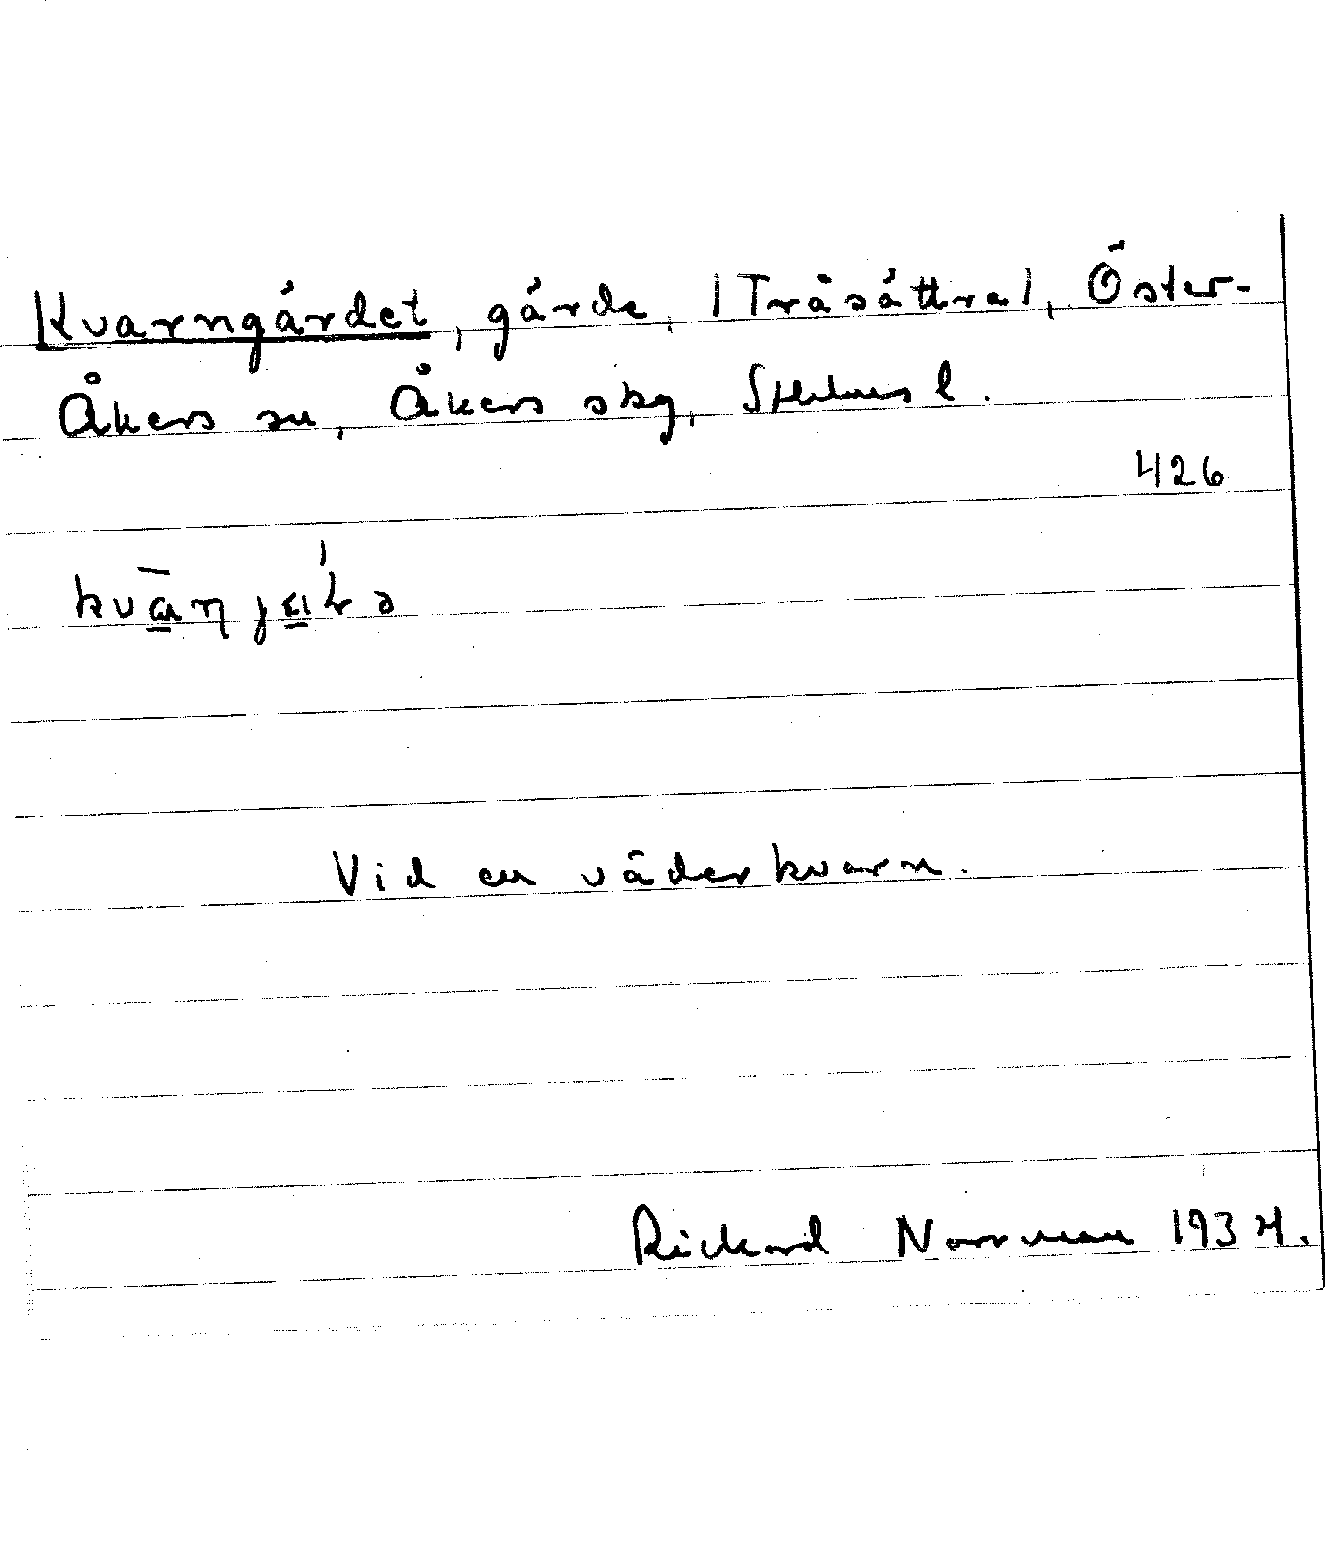 Kvarngärdet, gärde, /Träsättra/, Öster-
Åkers sn, Åkers skg, Sthlms l.
426
Vid en väderkvarn.
Rickard Norrman 1934.